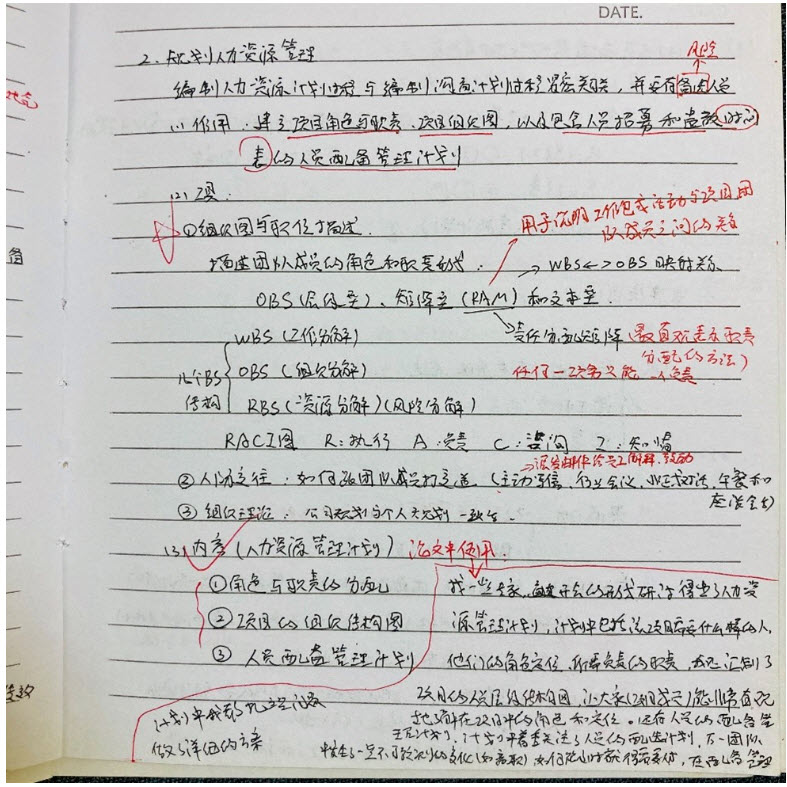 DATE.
2、规划人力资源管理
风险
编制人力资源计划过程与编制沟通计划过程紧密关联，并要有备选人员
(1) 作用：建立项目角色与职责、项目组织图，以及包含人员招募和遣散时间
表的人员配备管理计划
(2) 工具：
用于说明工作包或活动与项目团
队成员之间的关系
①组织图与职位描述.
描述团队成员的角色和职责
→ WBS<->OBS 映射关系
OBS (层级型)、矩阵型 (RAM) 和文本型.
责任分配矩阵 (最直观 职责
分配的方法)
WBS (工作分解)
OBS (组织分解)
任何一项任务只能一人负责
几个BS
结构
RBS (资源分解)(风险分解)
RACI图 R:执行 A:负责 C:咨询 I:知情
②人际交往：如何跟团队成员打交道 (主动写信, 行业会议, 非正式对话, 午餐和
座谈会)
③组织理论：公司规划与个人规划一致
(3) 内容 (人力资源管理计划)
论文中使用：
①角色与职责的分配
找一些专家 开会的形式 研讨得出了人力资
②项目的组织结构图
源管理计划, 计划中包括该项目需要什么样的人,
③ 人员配备管理计划
他们的角色定位, 所要负责的职责, 我还汇制了
项目的人员层级结构图, 让大家 能非常直观
地 在项目中的角色和定位。还有人员的配备管
理计划, 计划中着重关注了人员的配备计划, 万一团队
发生了一定不可预测的变化 如何
计划中我
做了详细的方案